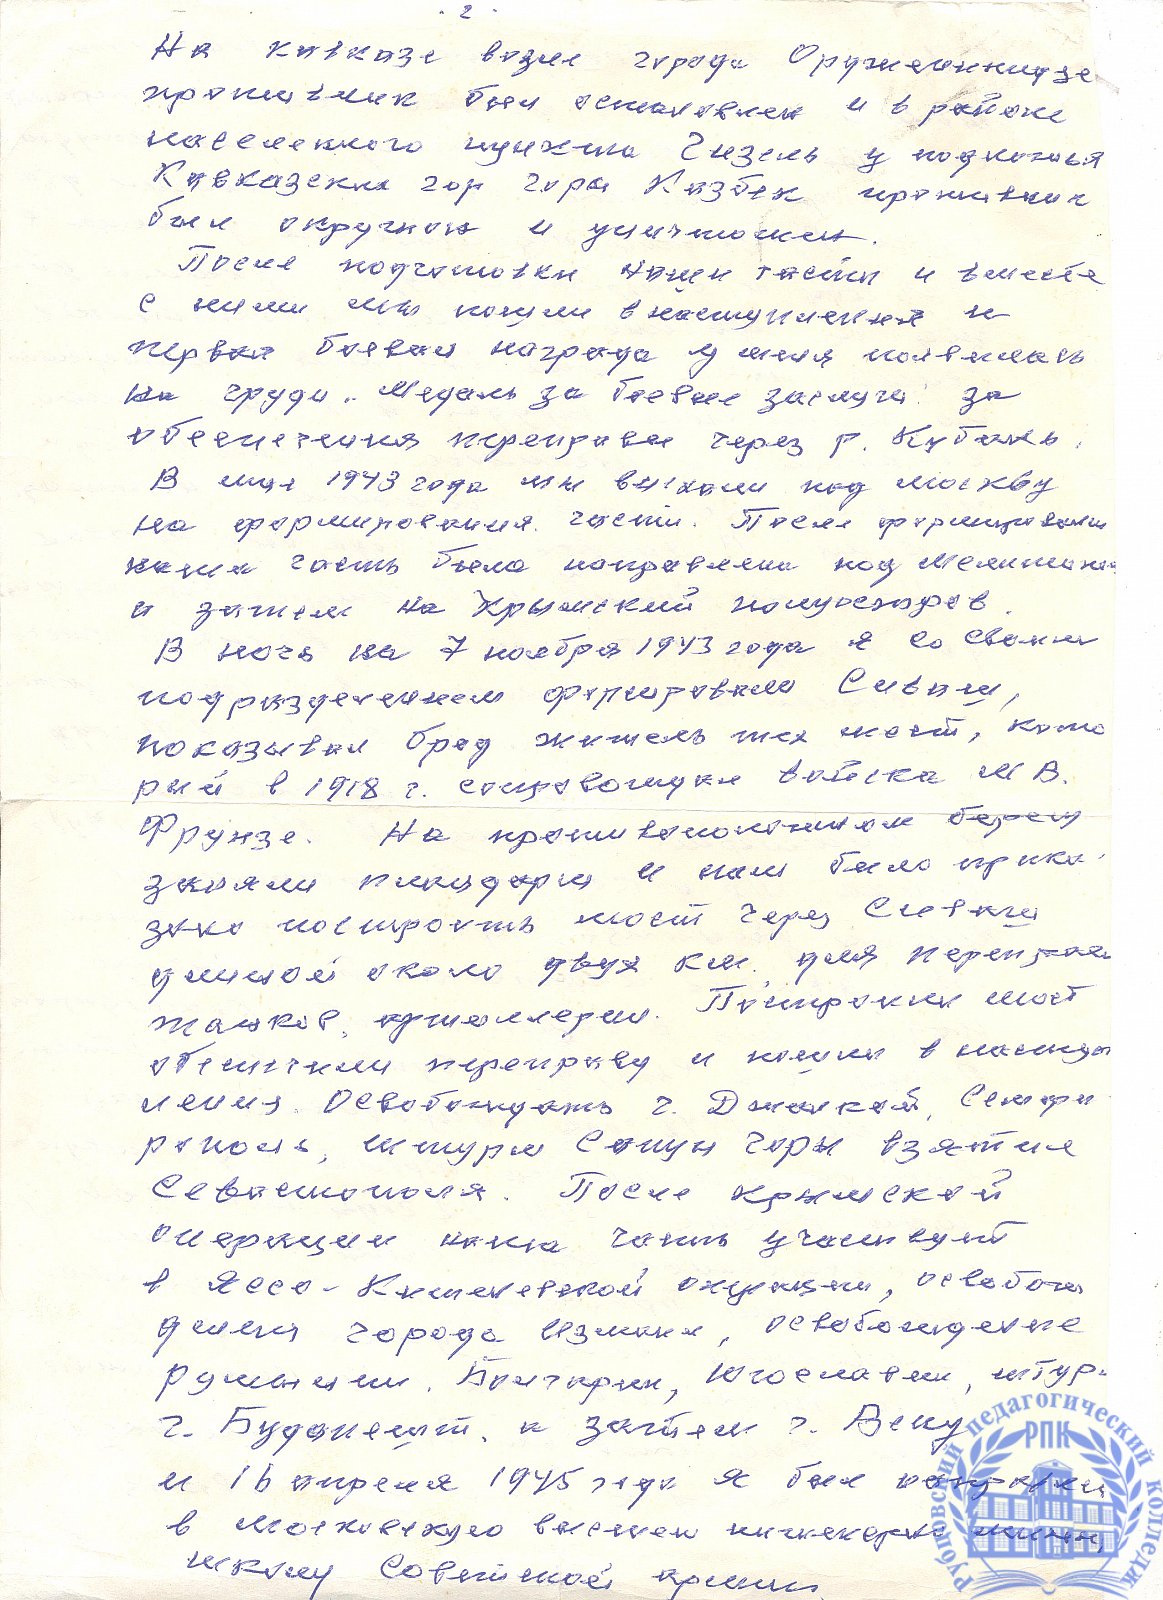 - 2 -
На кавказе возле города Оружеоникидзе
противник был остановлен и в районе
населенного пункта Гизель у подножья
Кавказских гор горы Казбек противник
был окружон и уничтожен.
После подготовки наши части и вместе
с ними мы пошли в наступления и
первая боевая награда у меня появилась
на груди. Медаль за боевые заслуги за
обеспечения переправы через р. Кубань.
В мая 1943 года мы выехали под москву
на формирования части. После формирования
наша часть была направлена под Мелитополь
и затем на Крымский полуостров.
В ночь на 7 ноября 1943 года я со своим
подразделением форсировали Сиваш,
показывал брод житель тех мест, кото
рый в 1918 г. сопровождал войска М В.
Фрунзе. На противоположном берегу
заняли плацдарм и нам было прика-
зано построить мост через Сиваш
длиной около двух км. для переправы
танков, артиллерии. Построили мост
обеспечили переправу и пошли в наступ
ления. Освобождать г. Джанкой, Симфе-
рополь, штурм Сапун горы взятие
Севастополя. После крымской
операции наша часть участвует
в Ясса-Кишеневской операции, освобож
дения города Измаил, освобождение
Румынии, Болгарии, Югославии, штурм
г. Будапешт, и затем г. Вену
и 16 апреля 1945 года я был направлен
в Московскую высшею инженерно
школу Советской армии
Рубцовский педагогический колледж
РПК